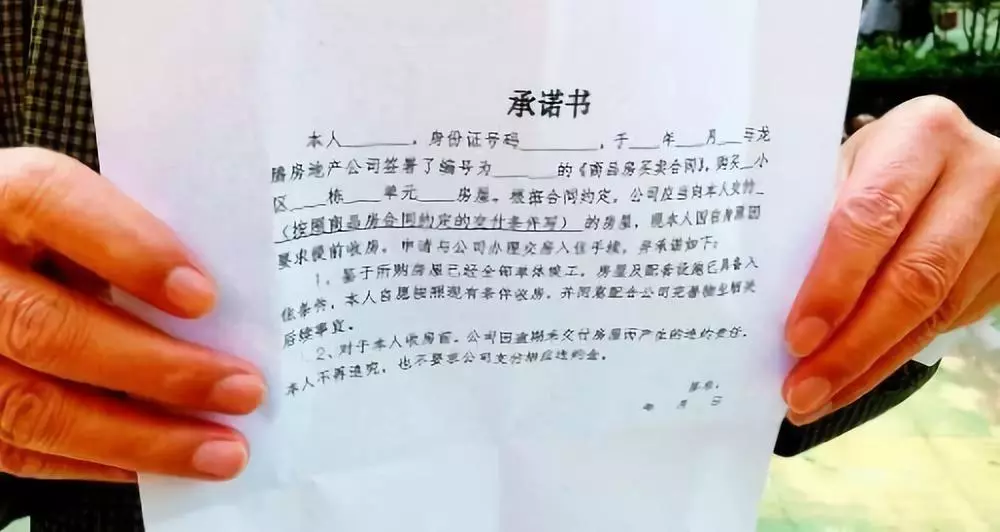 承诺书
本人______，身份证号码________，于___年___月__与龙
腾房地产公司签署了编号为______的《商品房买卖合同》，购买__小
区____栋____单元____房屋。根据合同约定，公司应当向本人交付_
（按照商品房合同约定的交付条件写）的房屋，现本人因自身原因
要求提前收房，申请与公司办理交房入住手续，并承诺如下：
1、鉴于所购房屋已经全部单体竣工，房屋及配套设施已具备入
住条件，本人自愿按照现有条件收房，并同意配合公司完善物业相关
后续事宜。
2、对于本人收房前，公司因逾期未交付房屋而产生的违约责任，
本人不再追究，也不要求公司支付相应违约金。
年 月 日